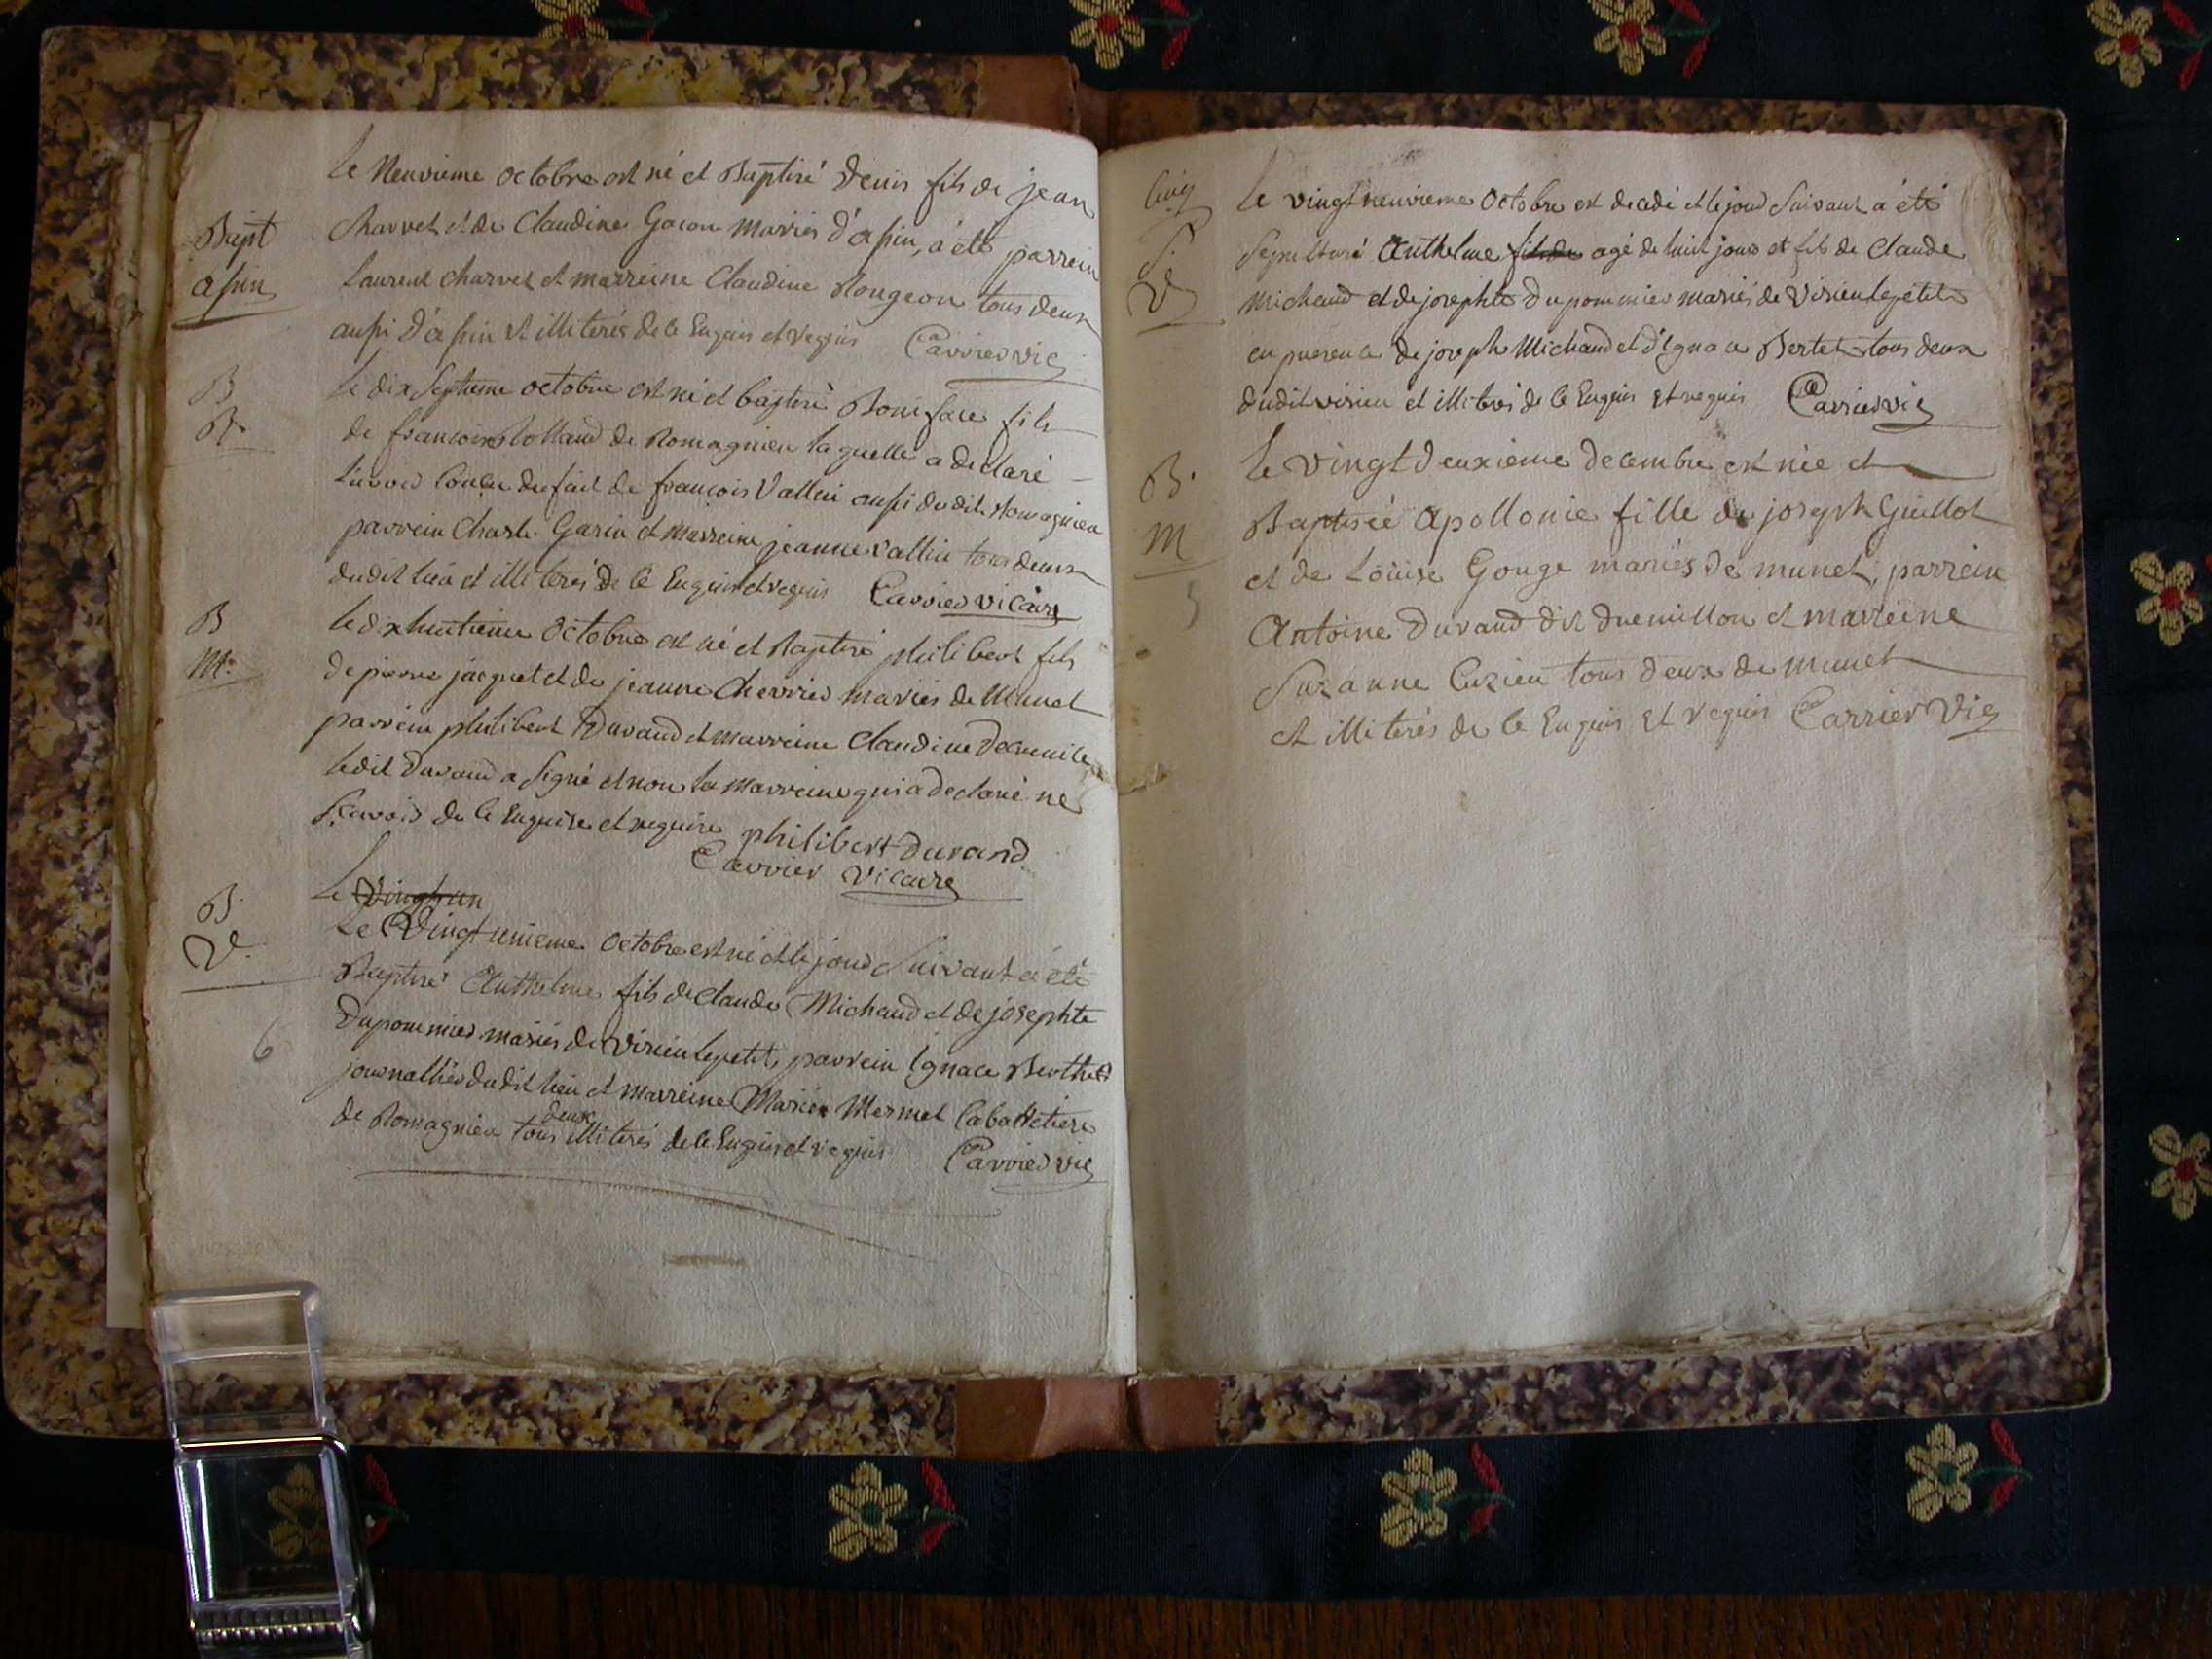 Le Neuvieme octobre est né et Baptisé Denis fils de jean
Bapt
apin
Charvet et de Claudine Gacon mariés d'apin, a été parrein
Laurent Charvet et marreine Claudine Rougeon tous deux
aussi d'apin et illiterés de ce Enquis et requis Carrier vic
B
R.
le dix Septieme octobre est né et baptisé Boniface fils
de francoise Rolland de Romagnieu laquelle a declaré
l'avoir Conçu du fait de francois Vallin aussi dudit Romagnieu
parrein Charle Garin et marreine jeanne Vallin tous deux
dudit lieu et illiterés de ce Enquis et requis Carrier vicaire
B
M.
le dix huitieme Octobre est né et Baptisé philibert fils
de pierre jacquet et de jeanne Chevrier mariés de Munet
parrein philibert Durand et marreine Claudine
ledit Durand a signé et non la marreine qui a declaré ne
Sçavoir de ce Enquise et requise philibert Durand
Carrier Vicaire
Le Vingt un
B.
V.
Le Vingt unieme Octobre est né et le jour Suivant a été
Baptisé Anthelme fils de Claude Michaud et de josephte
Dupommier mariés de Virieu le petit, parrein Ignace Berthet
6
journallier dudit lieu et marreine Mariée Mermet Cabaretiere
de Romagnieu tous deux illiterés de ce Enquis et requis Carrier vic
Cuiq
S.
V
Le vingt neuvieme Octobre est decedé et le jour Suivant a été
Sepulturé Anthelme fils de agé de huit jours et fils de Claude
Michaud et de josephte Dupommier mariés de Virieu le petit
en presence de joseph Michaud et d'Ignace Bertet tous deux
dudit virieu et illiterés de ce Enquis et requis Carrier vic
B.
M
Le Vingt deuxieme Decembre est née et
Baptisée Apollonie fille de joseph Guillot
et de Loüise Gouge mariés de munet, parrein
5
Antoine Durand dit et marreine
Suzanne Cuzieu tous deux de munet
et illiterés de ce Enquis et requis Carrier Vic